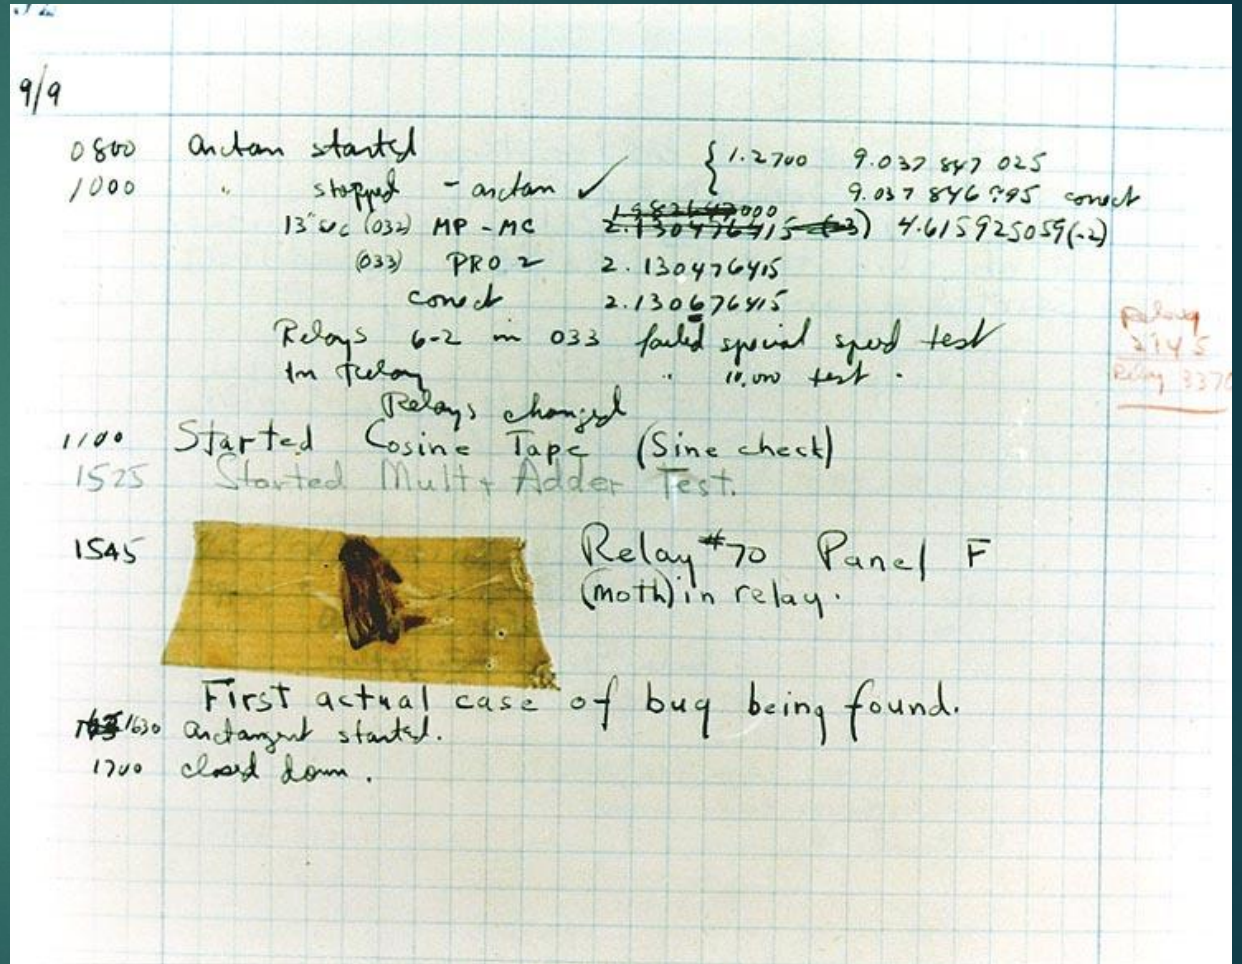 9/9
0800 arctan started { 1.2700 9.037 847 025
1000 " stopped - arctan ✓ 9.037 846 995 correct
13"uc (032) MP - MC 1.982647000 2.130476415 (-3) 4.615925059(-2)
(033) PRO 2 2.130476415
correct 2.130676415
Relays 6-2 in 033 failed special speed test
In Relay " 10.000 test .
Relay
2145
Relay 3370
Relays changed
1100 Started Cosine Tape (Sine check)
1525 Started Mult + Adder Test.
1545 Relay #70 Panel F
(moth) in relay.
First actual case of bug being found.
1630 arctangent started.
1700 closed down.